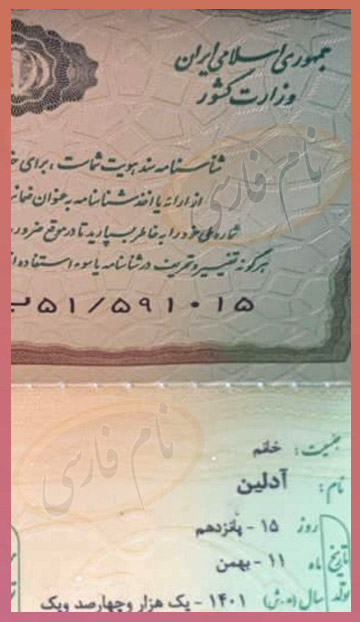 جمهوری اسلامی ایران
وزارت کشور
شناسنامه سند هویت شماست ، برای
از ارائه یا اخذ شناسنامه به عنوان
شماره ملی خود را به خاطر بسپارید تا در موقع
هرگونه تغییر و تحریف در شناسنامه یا سوء استفاده
۵۱/۵۹۱۰۱۵
نام فارسی
نام فارسی
جنسیت : خانم
نام : آدلین
تاریخ تولد
روز ۱۵ - پانزدهم
ماه ۱۱ - بهمن
سال (ه.ش) ۱۴۰۱ - یک هزار و چهارصد و یک